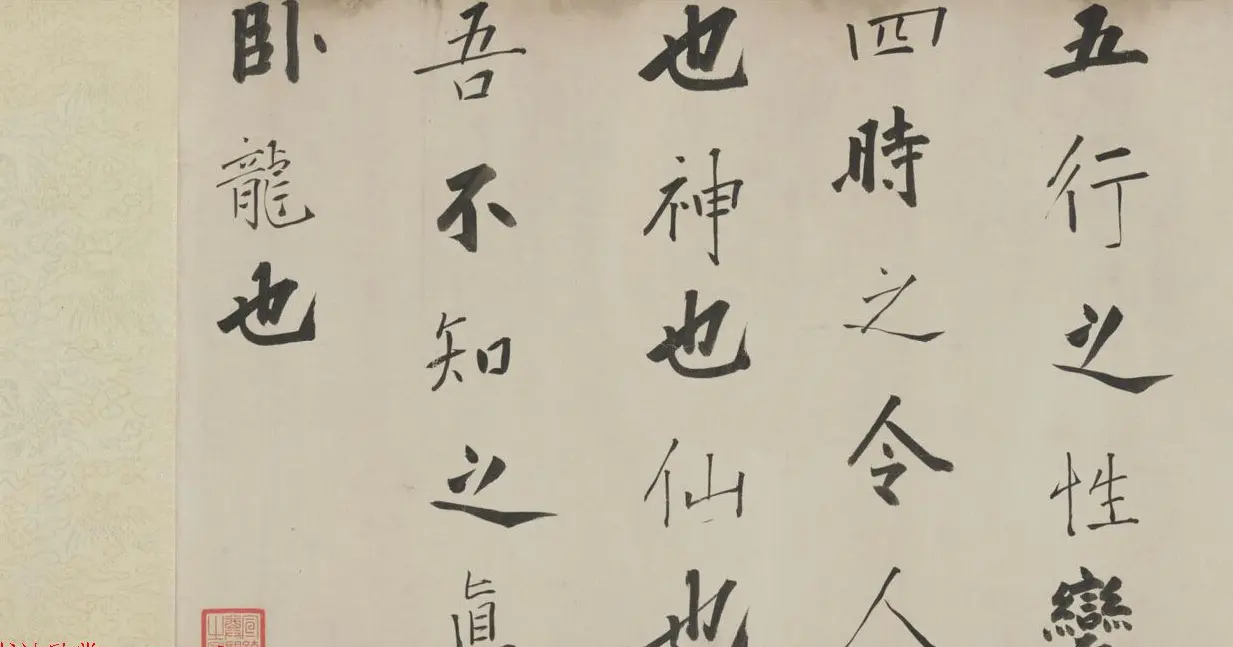 五行之性變
四時之令人
也神也仙也
吾不知之真
臥龍也